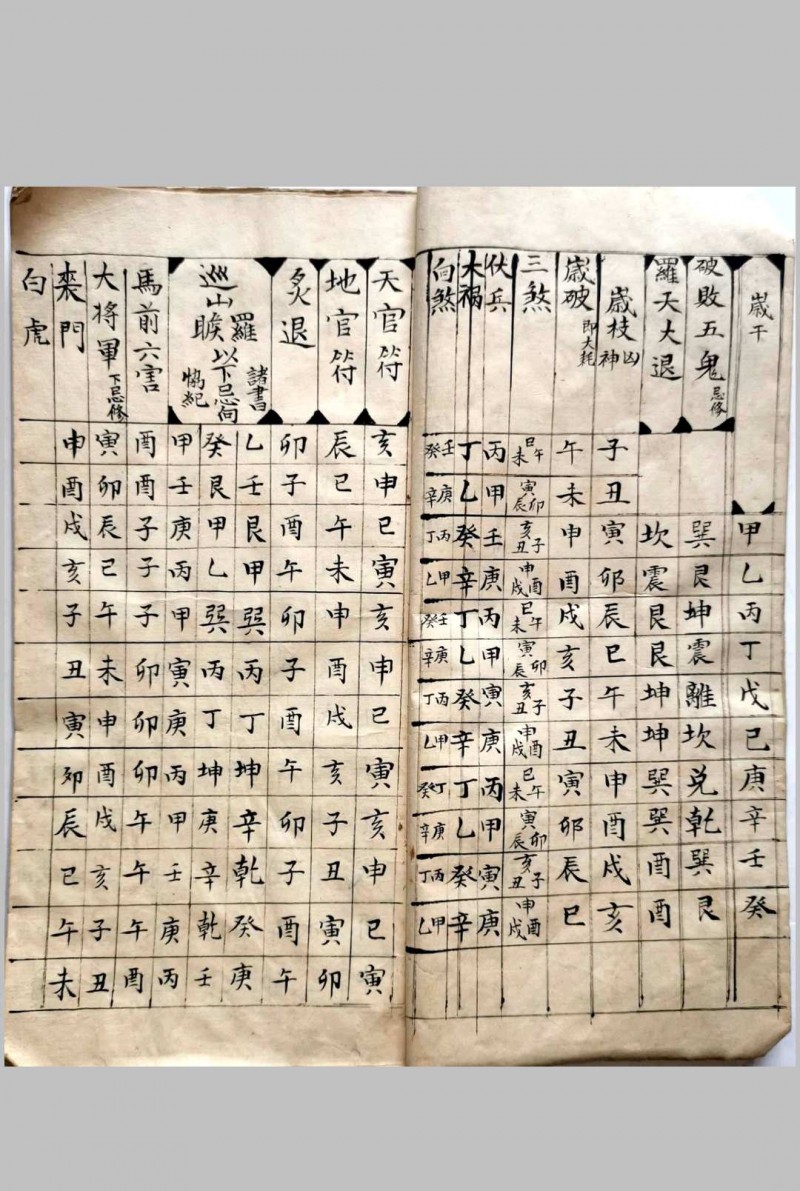 歲干
甲乙丙丁戊己庚辛壬癸
破敗五鬼 忌修
巽艮坤震離坎兌乾巽艮
羅天大退
坎震艮艮坤坤巽巽酉酉
歲枝 凶神
子丑寅卯辰巳午未申酉戌亥
歲破 即大耗
午未申酉戌亥子丑寅卯辰巳
三煞
巳午未 寅卯辰 亥子丑 申酉戌 巳午未 寅卯辰 亥子丑 申酉戌 巳午未 寅卯辰 亥子丑 申酉戌
伏兵
丙甲壬庚丙甲寅庚丙甲寅庚
木禍
丁乙癸辛丁乙癸辛丁乙癸辛
向煞
壬癸 庚辛 丙丁 甲乙 壬癸 庚辛 丙丁 甲乙 丁癸 庚辛 丙丁 甲乙
天官符
亥申巳寅亥申巳寅亥申巳寅
地官符
辰巳午未申酉戌亥子丑寅卯
炙退
卯子酉午卯子酉午卯子酉午
巡山羅睺 以下忌向 諸書
乙壬艮甲巽丙丁坤辛乾癸庚
癸艮甲乙巽丙丁坤庚辛乾壬
甲壬庚丙甲寅庚丙甲壬庚丙
馬前六害
酉酉子子子卯卯卯午午午酉
大将軍 下忌修
寅卯辰巳午未申酉戌亥子丑
喪門
申酉戌亥子丑寅卯辰巳午未
白虎